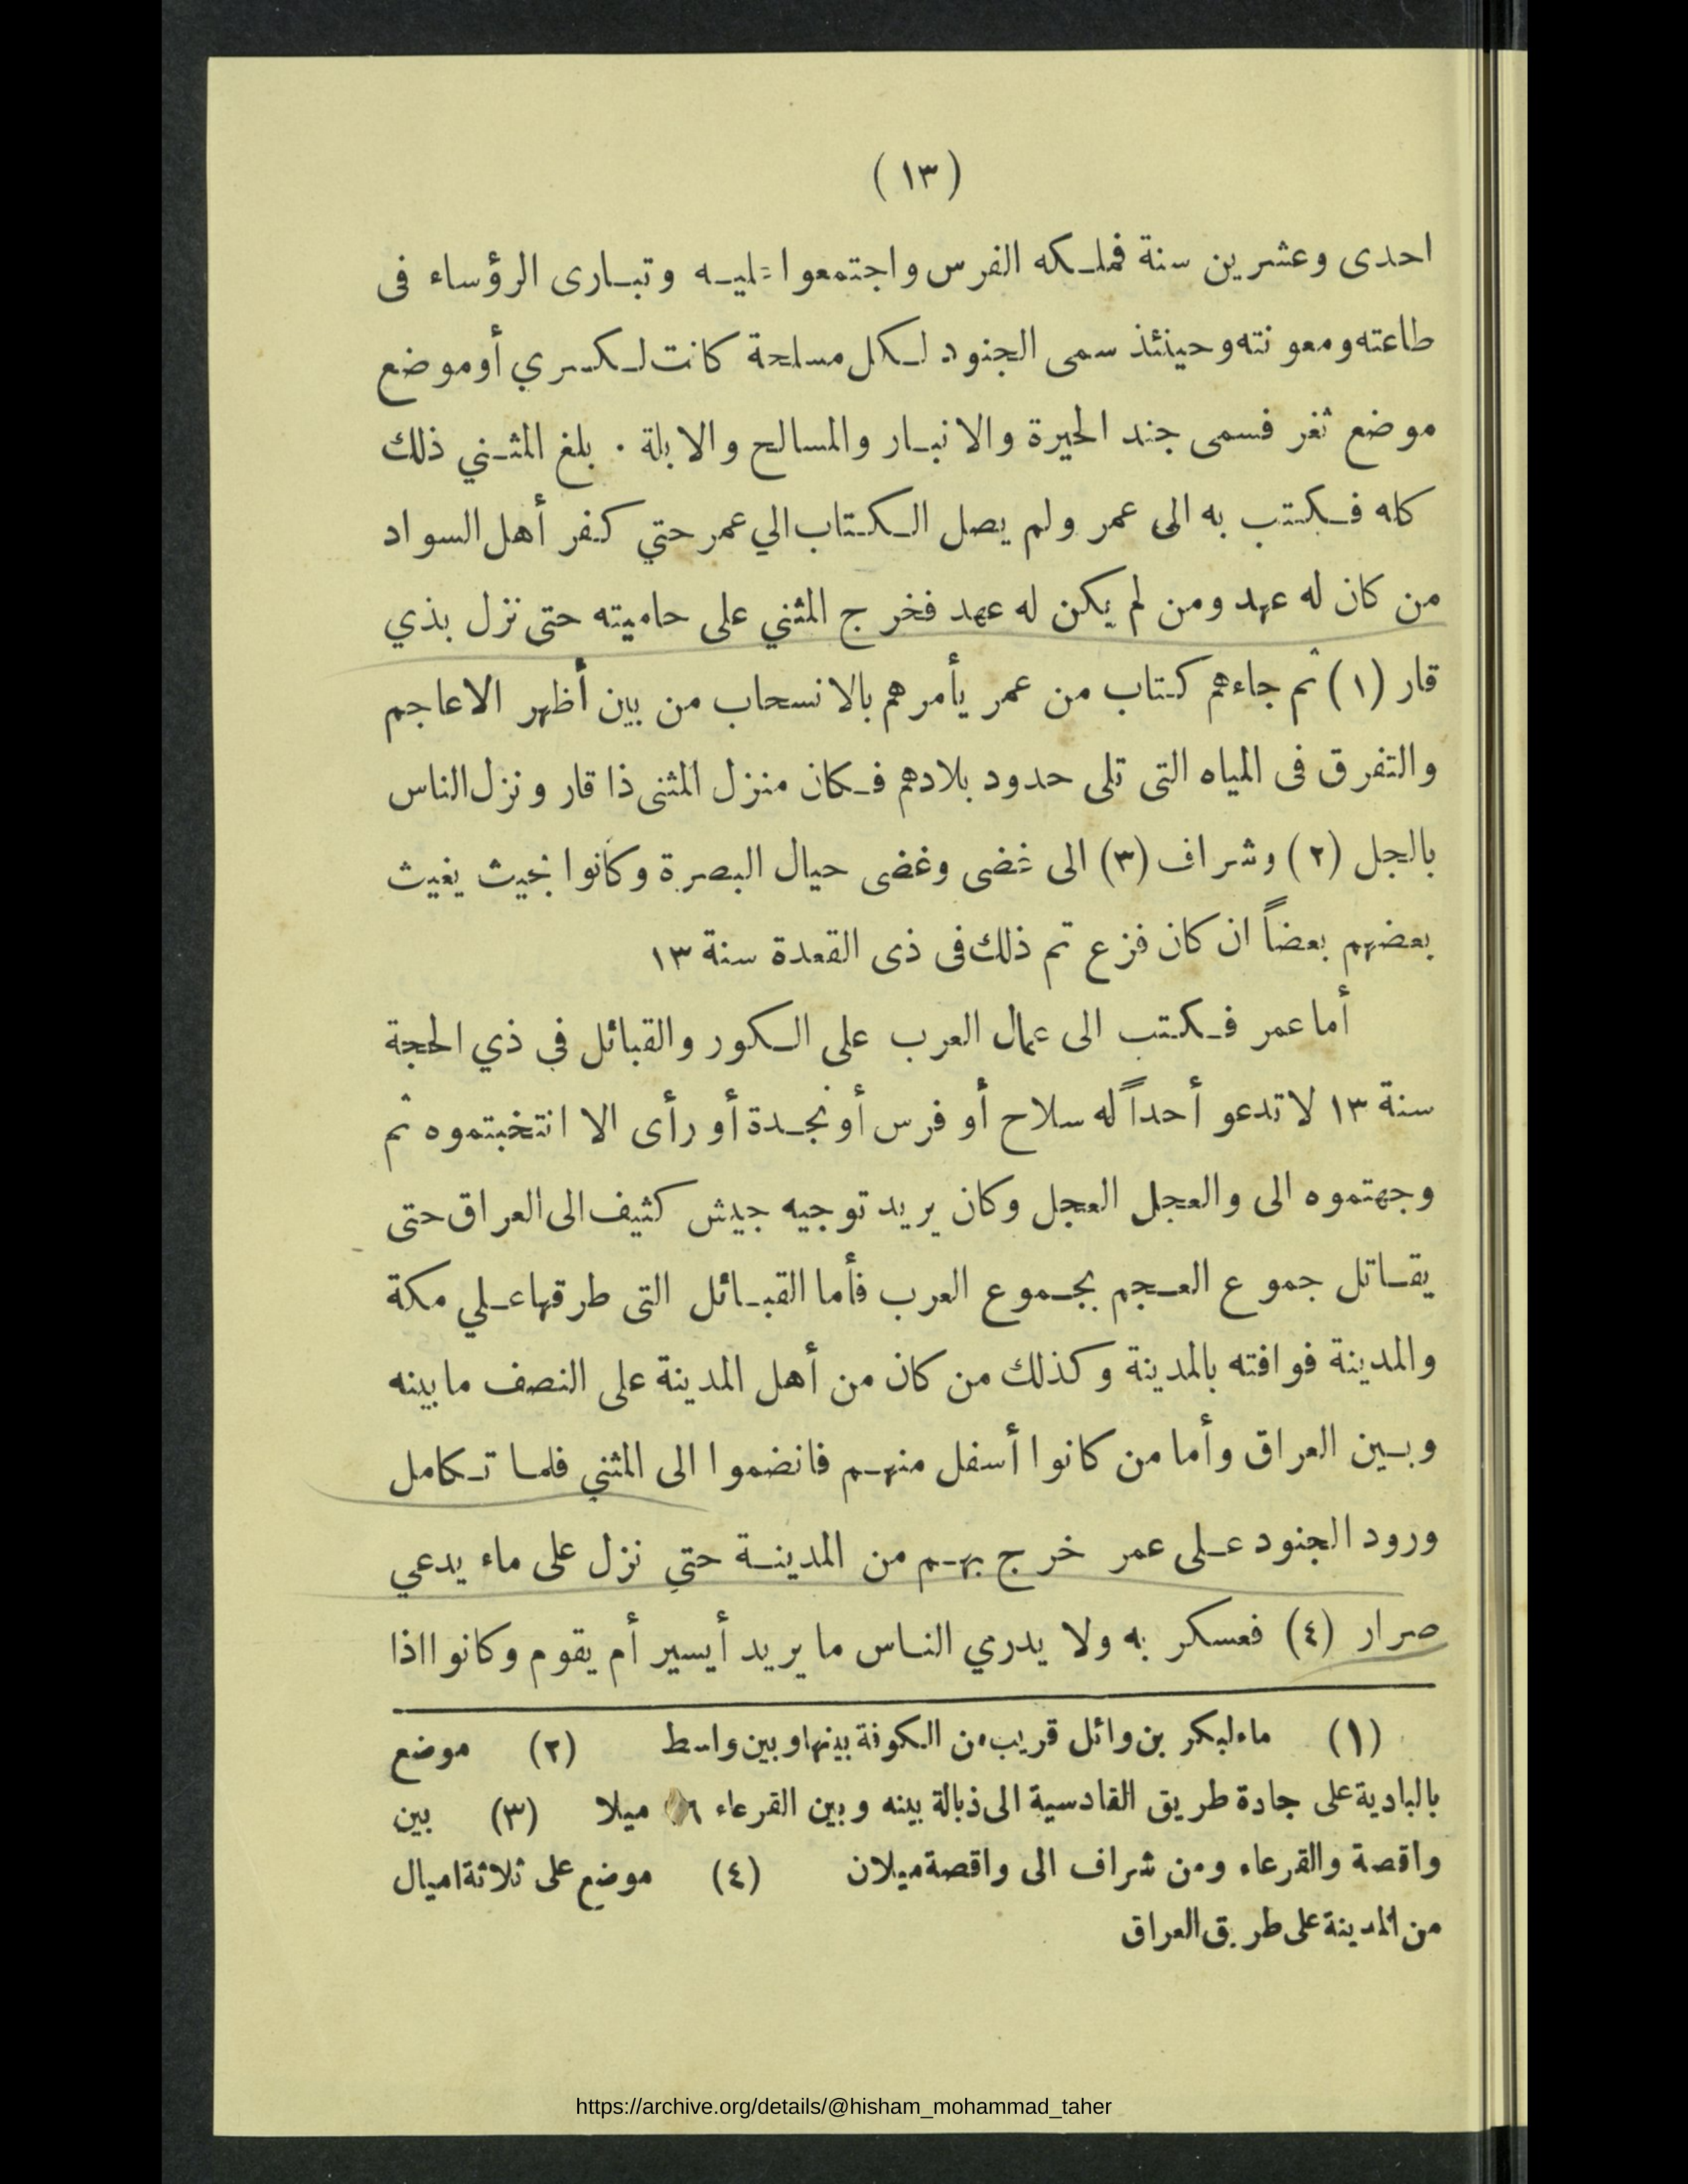 (١٣)
احدى وعشرين سنة فملكه الفرس واجتمعوا عليه وتبارى الرؤساء فى
طاعته ومعونته وحينئذ سمى الجنود لكل مسلحة كانت لكسري أوموضع
موضع ثغر فسمى جند الحيرة والانبار والمسالح والابلة . بلغ المثني ذلك
كله فكتب به الى عمر ولم يصل الكتاب الي عمر حتي كفر أهل السواد
من كان له عهد ومن لم يكن له عهد فخرج المثني على حاميته حتى نزل بذي
قار (١) ثم جاءهم كتاب من عمر يأمرهم بالانسحاب من بين أظهر الاعاجم
والتفرق فى المياه التى تلى حدود بلادهم فكان منزل المثنى ذا قار ونزل الناس
بالجل (٢) وشراف (٣) الى غضى وغضى حيال البصرة وكانوا بحيث يغيث
بعضهم بعضاً ان كان فزع تم ذلك فى ذى القعدة سنة ١٣
أما عمر فكتب الى عمال العرب على الكور والقبائل في ذي الحجة
سنة ١٣ لا تدعو أحداً له سلاح أو فرس أو نجدة أو رأى الا انتخبتموه ثم
وجهتموه الى والعجل العجل وكان يريد توجيه جيش كثيف الى العراق حتى
يقاتل جموع العجم بجموع العرب فأما القبائل التى طرقها علي مكة
والمدينة فوافته بالمدينة وكذلك من كان من أهل المدينة على النصف ما بينه
وبين العراق وأما من كانوا أسفل منهم فانضموا الى المثني فلما تكامل
ورود الجنود على عمر خرج بهم من المدينة حتي نزل على ماء يدعي
صرار (٤) فعسكر به ولا يدري الناس ما يريد أيسير أم يقوم وكانوا اذا
(١) ماء لبكر بن وائل قريب من الكوفة بينها وبين واسط (٢) موضع
بالبادية على جادة طريق القادسية الى ذبالة بينه وبين القرعاء ميلا (٣) بين
واقصة والقرعاء ومن شراف الى واقصة ميلان (٤) موضع على ثلاثة اميال
من المدينة على طريق العراق
https://archive.org/details/@hisham_mohammad_taher